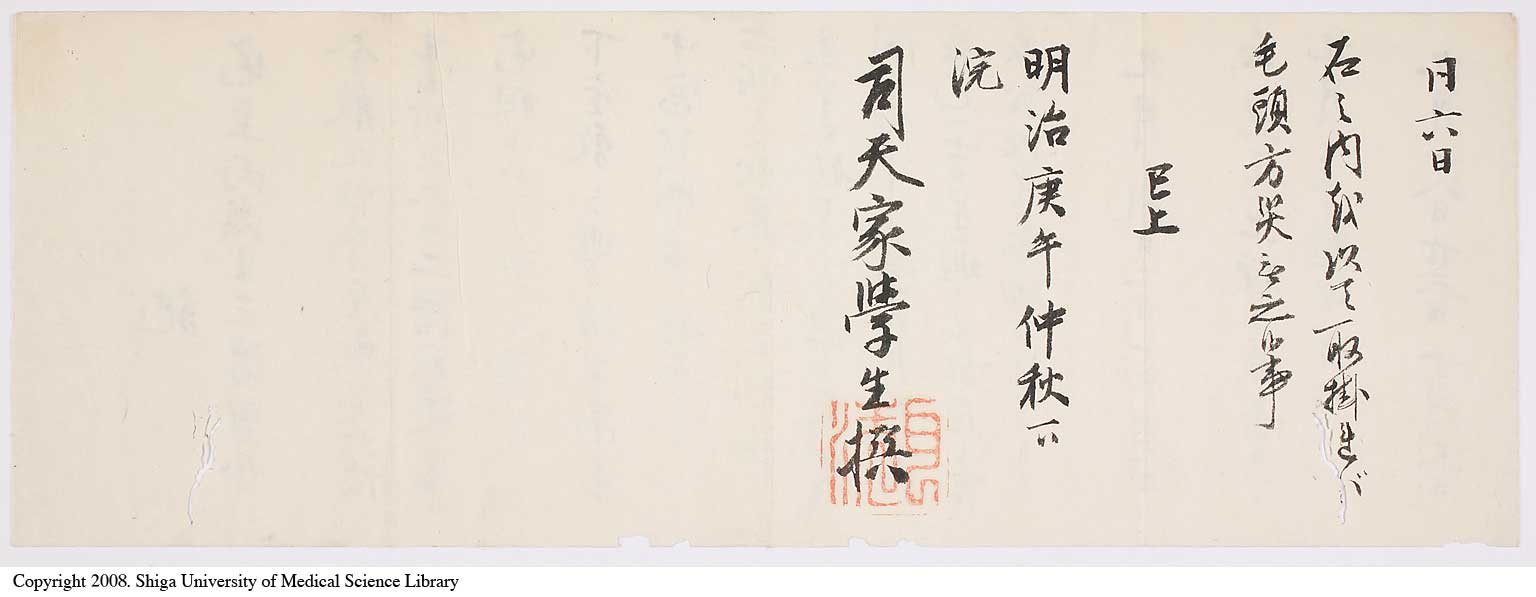 月六日
右之内越以て可取掛連バ
毛頭方 之候事
已上
明治庚午仲秋下
浣
司天家學生撰
Copyright 2008. Shiga University of Medical Science Library